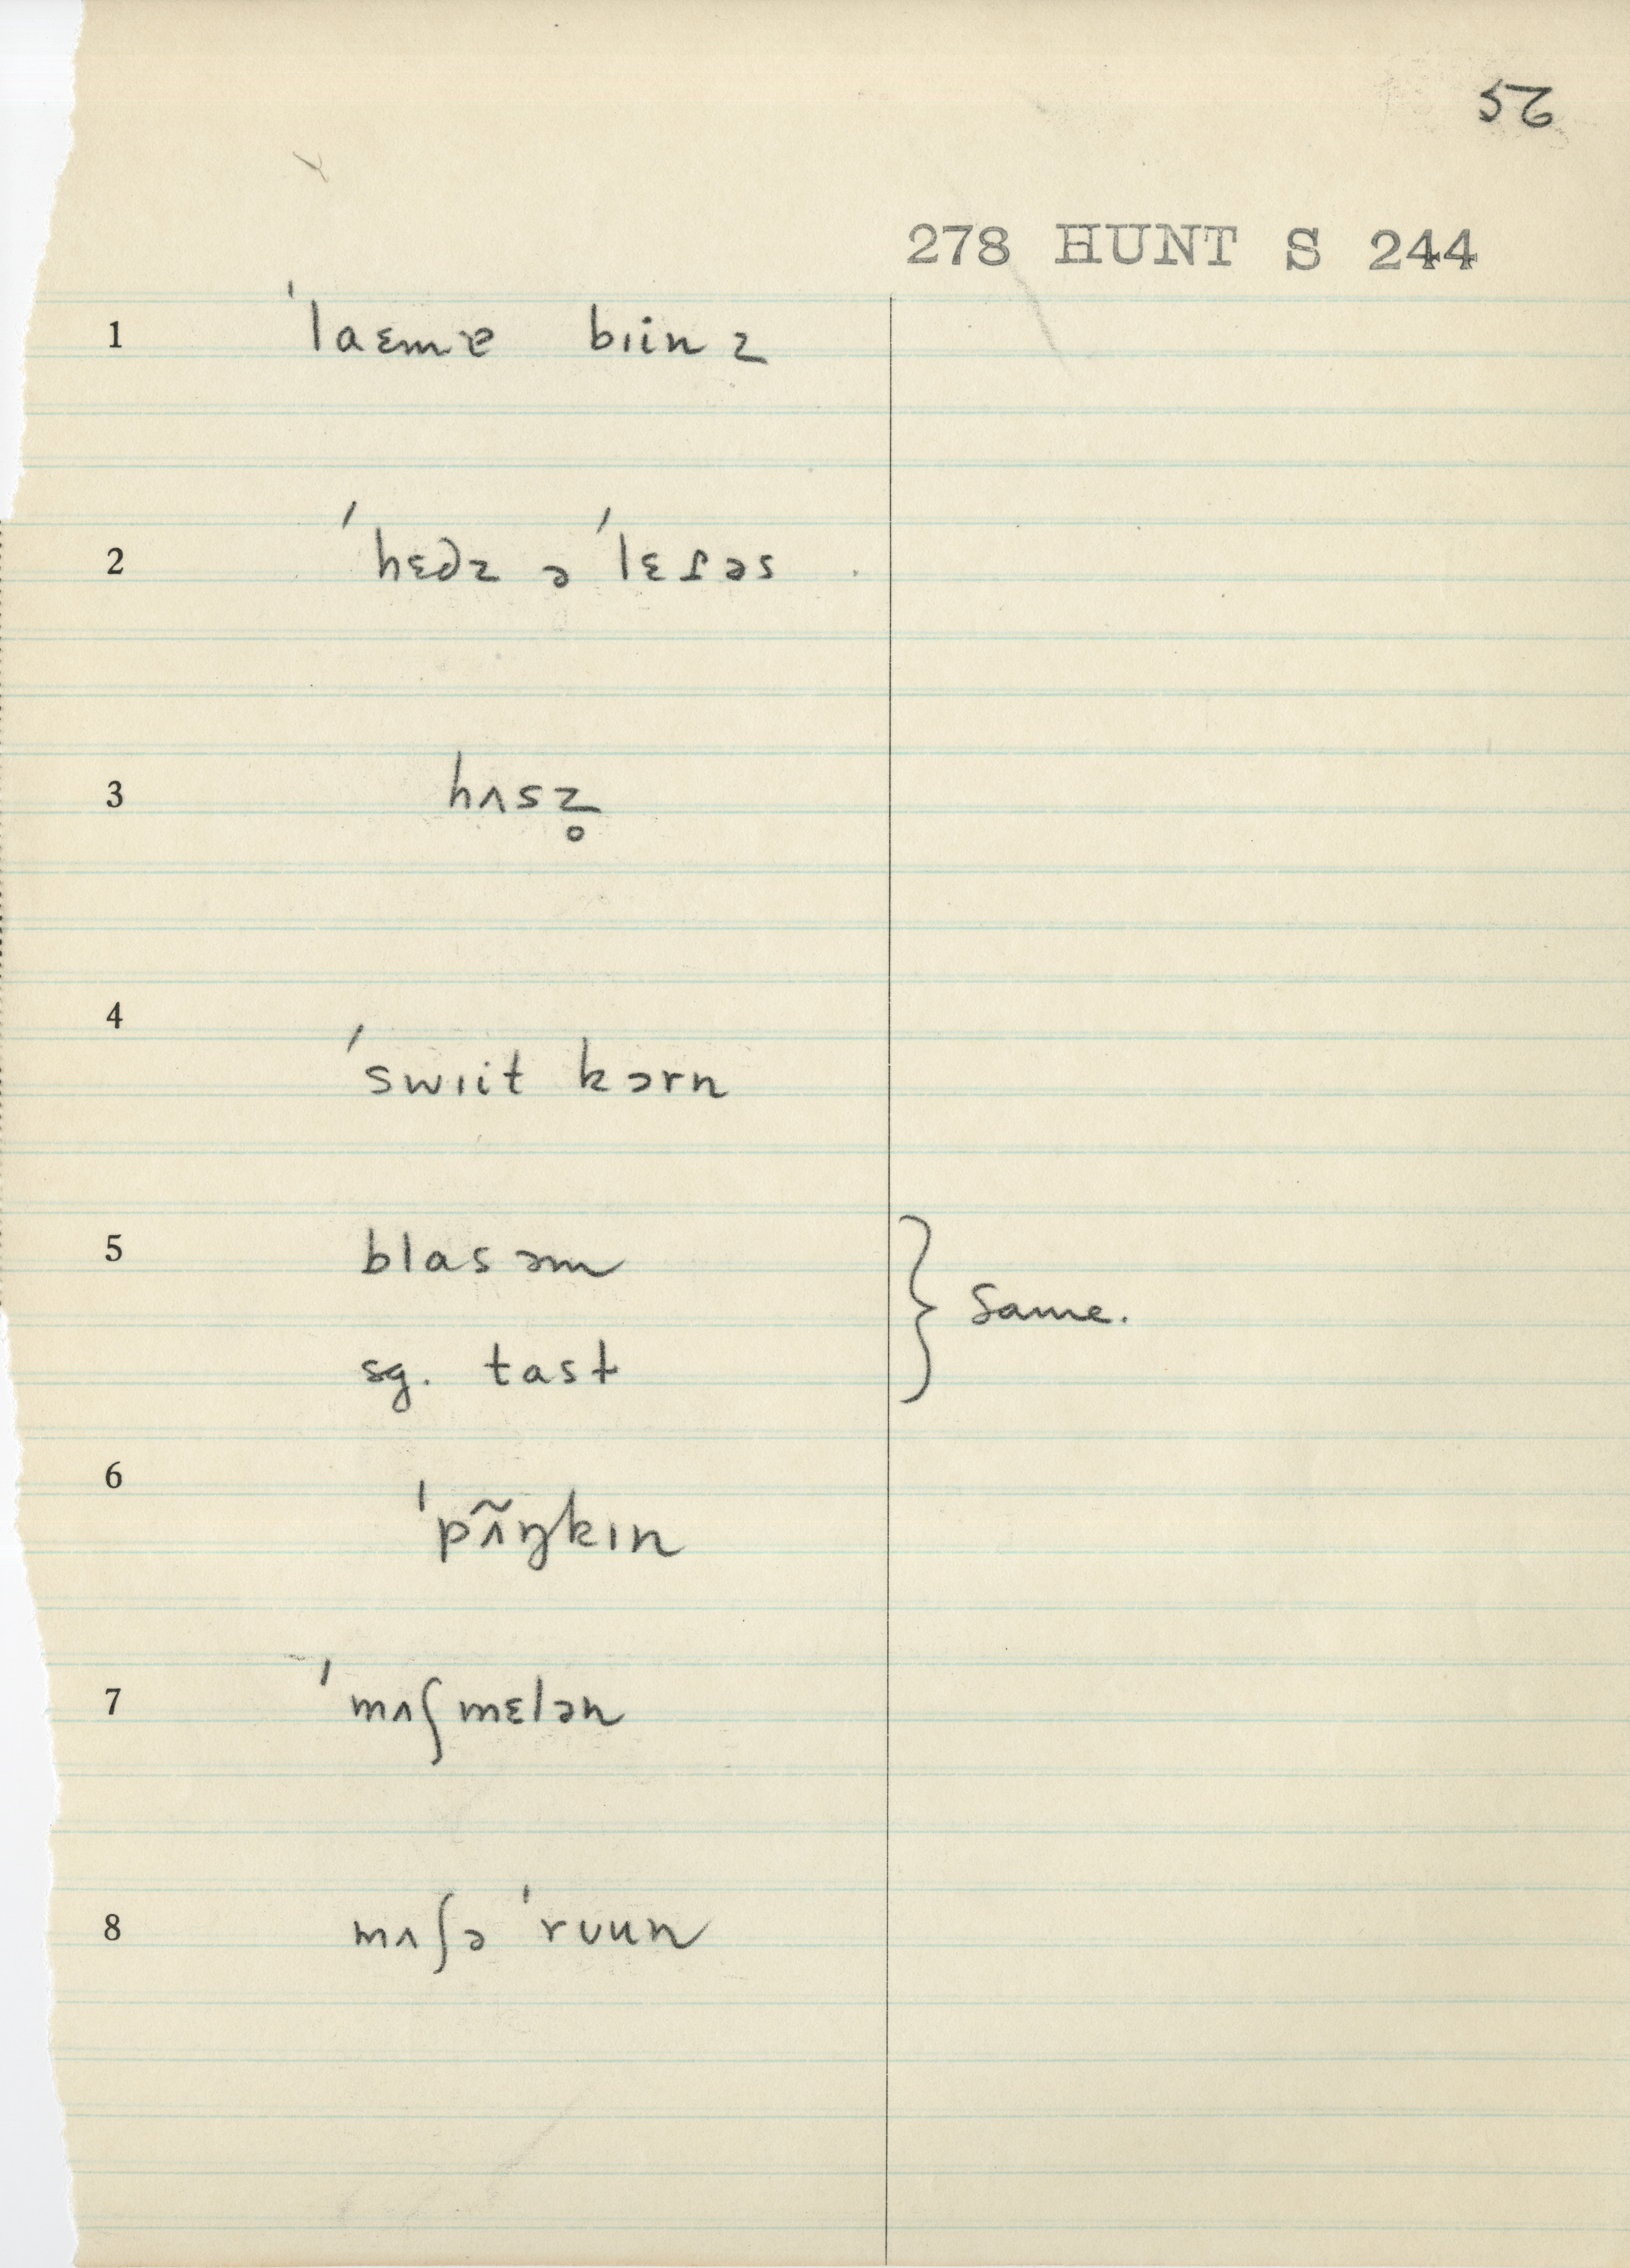 52
278 HUNT S 244
1 ˈlaɛmɐ bɪinz
2 ˈhɛdz ə ˈlɛɾəs
3 hʌsz̥
4 ˈswɪit kɔrn
5 blasəm
sg. tast
} Same.
6 ˈpʌ̃ŋkɪn
7 ˈmʌʃmɛlən
8 mʌʃə ˈrʊun